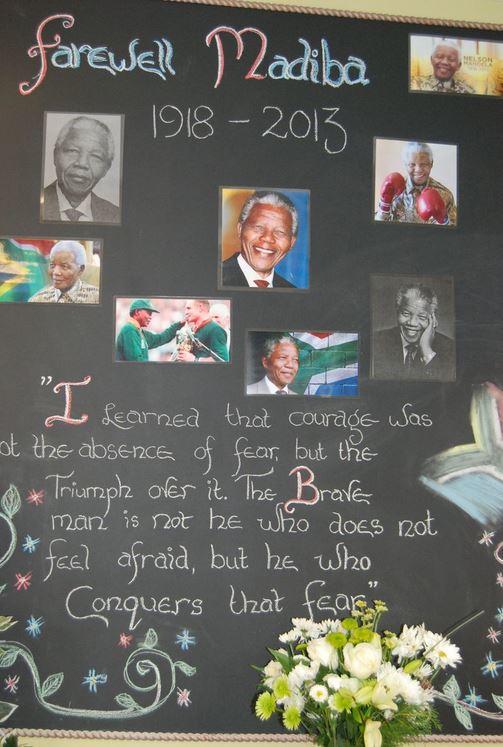 Farewell Madiba
NELSON
MANDELA
1918 – 2013
"I Learned that courage was
ot the absence of fear, but the
Triumph over it. The Brave
man is not he who does not
feel afraid, but he who
Conquers that fear"